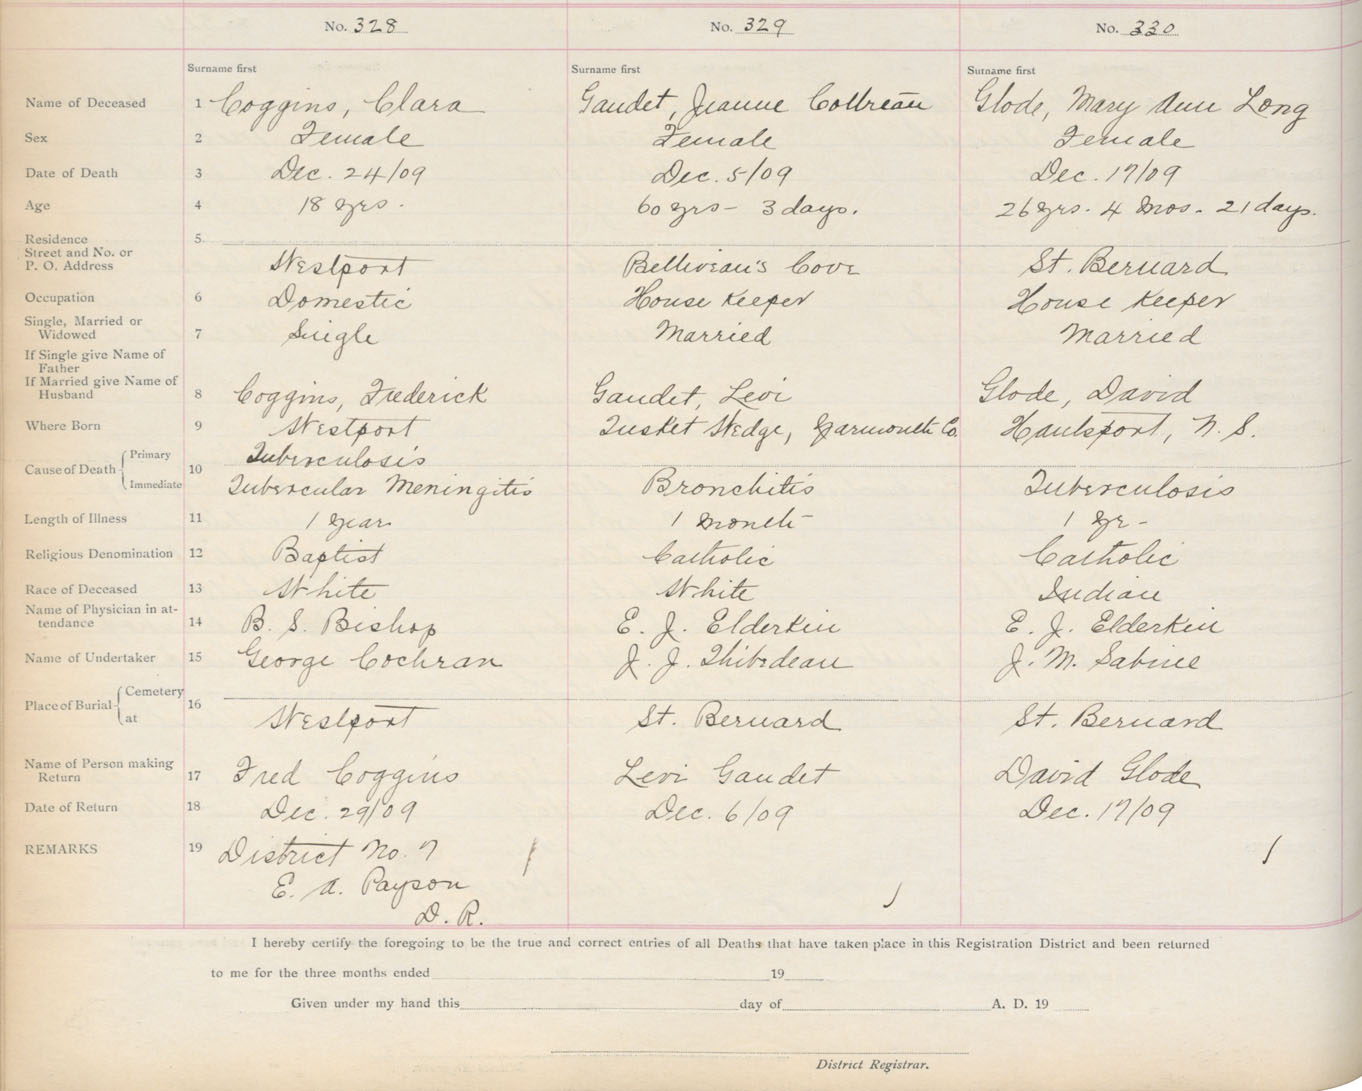 No. 328 No. 329 No. 330
Surname first Surname first Surname first
Name of Deceased 1 Coggins, Clara Gaudet, Jeanne Cottreau Glode, Mary Ann Long
Sex 2 Female Female Female
Date of Death 3 Dec. 24/09 Dec. 5/09 Dec. 17/09
Age 4 18 yrs. 60 yrs - 3 days. 26 yrs. 4 mos. 21 days.
Residence 5
Street and No. or
P. O. Address Westport Belliveau's Cove St. Bernard
Occupation 6 Domestic House Keeper House Keeper
Single, Married or
Widowed 7 Single Married Married
If Single give Name of
Father
If Married give Name of
Husband 8 Coggins, Frederick Gaudet, Levi Glode, David
Where Born 9 Westport Tusket Wedge, Yarmouth Co. Hantsport, N. S.
Cause of Death Primary 10 Tuberculosis
Immediate Tubercular Meningitis Bronchitis Tuberculosis
Length of Illness 11 1 year 1 month 1 yr-
Religious Denomination 12 Baptist Catholic Catholic
Race of Deceased 13 White White Indian
Name of Physician in at-
tendance 14 B. S. Bishop E. J. Elderkin E. J. Elderkin
Name of Undertaker 15 George Cochran J. J. Thibodeau J. M. Sabine
Place of Burial Cemetery 16
at Westport St. Bernard St. Bernard
Name of Person making
Return 17 Fred Coggins Levi Gaudet David Glode
Date of Return 18 Dec. 29/09 Dec. 6/09 Dec. 17/09
REMARKS 19 District No. 7
E. A. Payson
D. R.
I hereby certify the foregoing to be the true and correct entries of all Deaths that have taken place in this Registration District and been returned
to me for the three months ended 19
Given under my hand this day of A. D. 19
District Registrar.